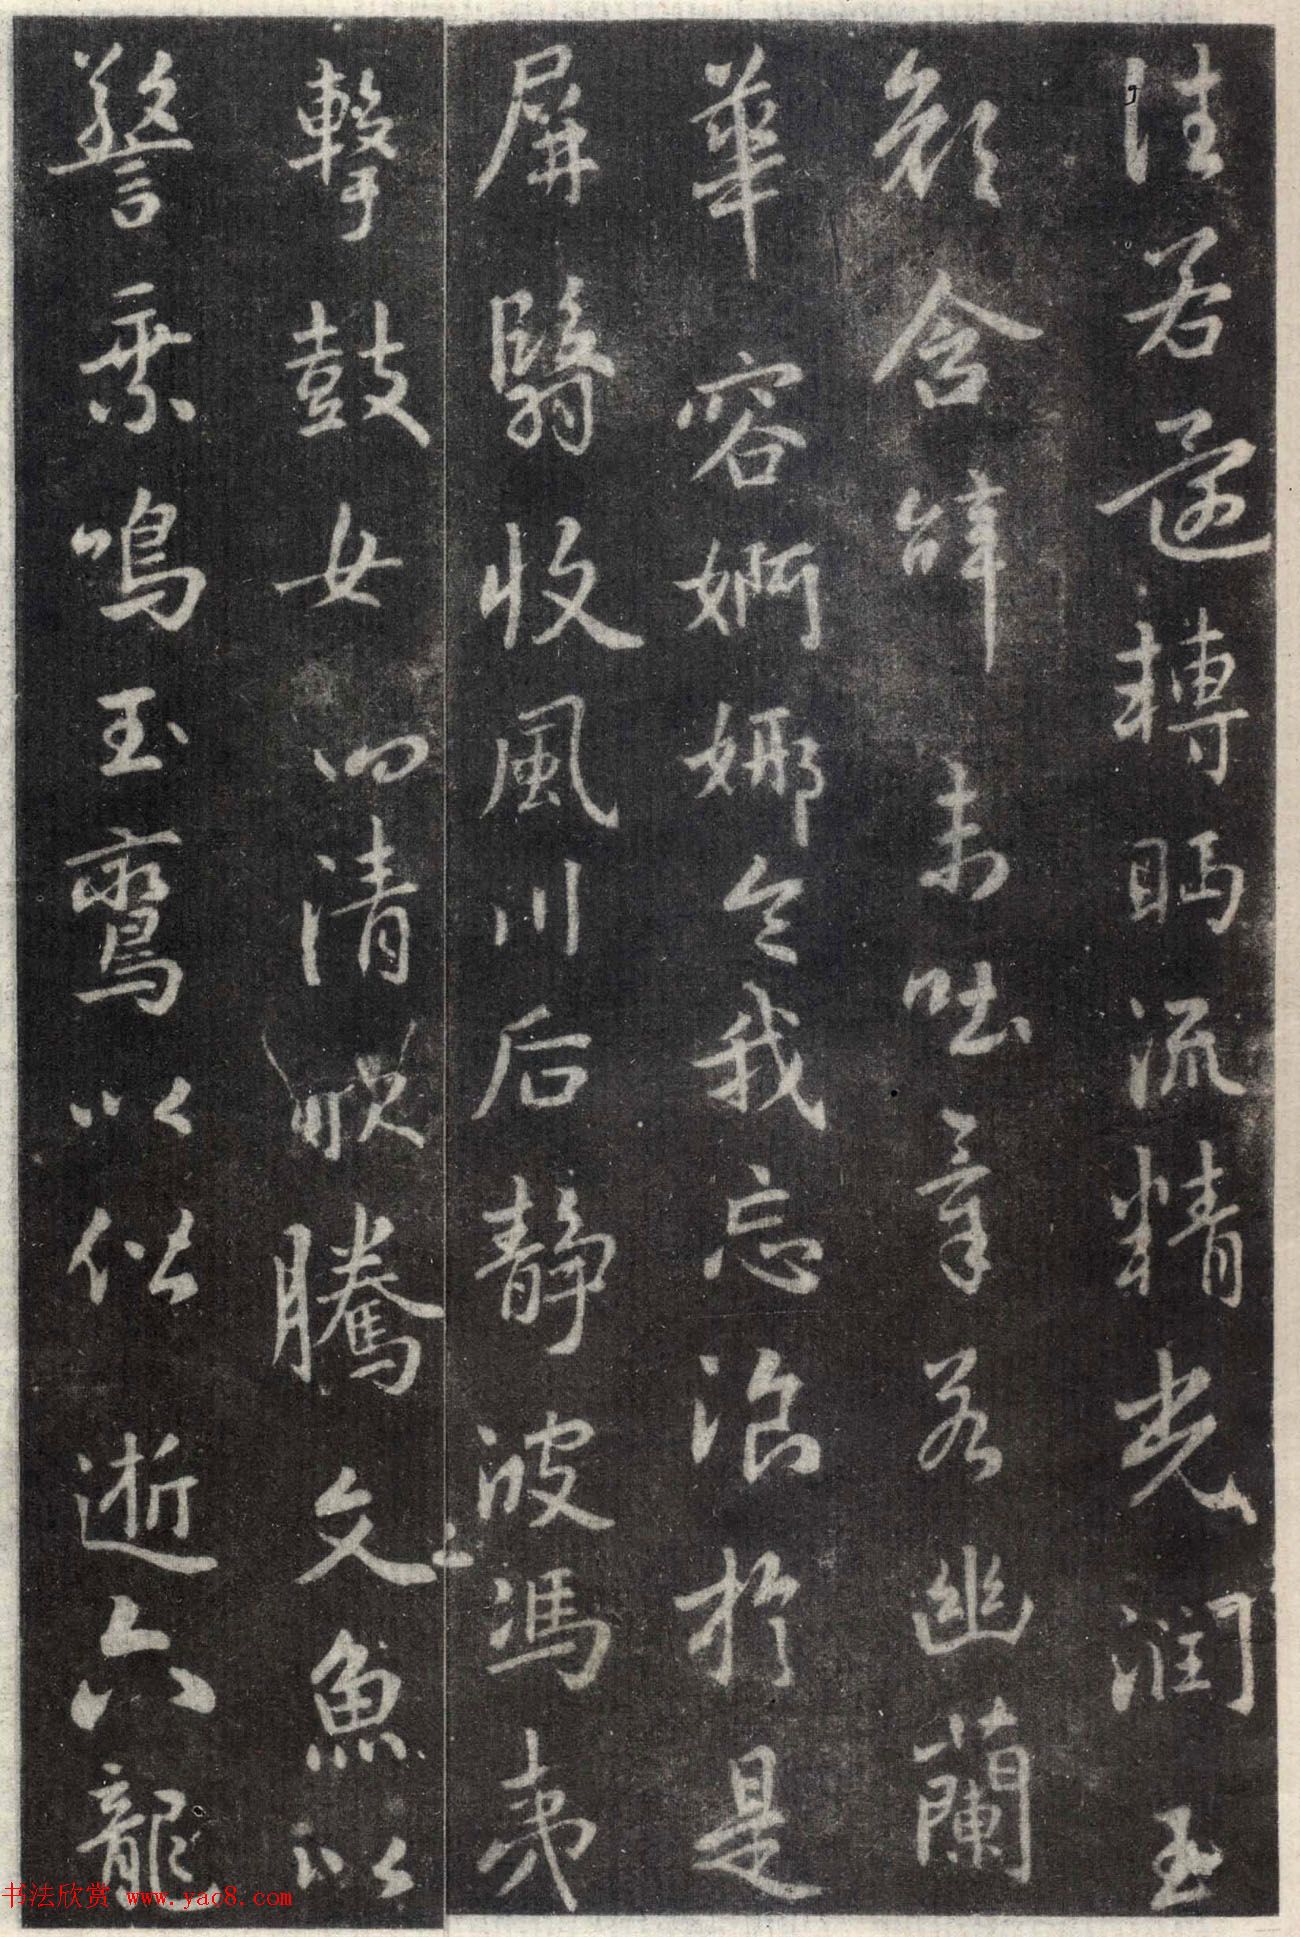 往若還轉眄流精光潤玉
顏含辭未吐氣若幽蘭
華容婀娜令我忘湌於是
屏翳收風川后靜波馮夷
擊鼓女清騰文魚以
警乘鳴玉鸞以偕逝六龍
书法欣赏 www.yac8.com